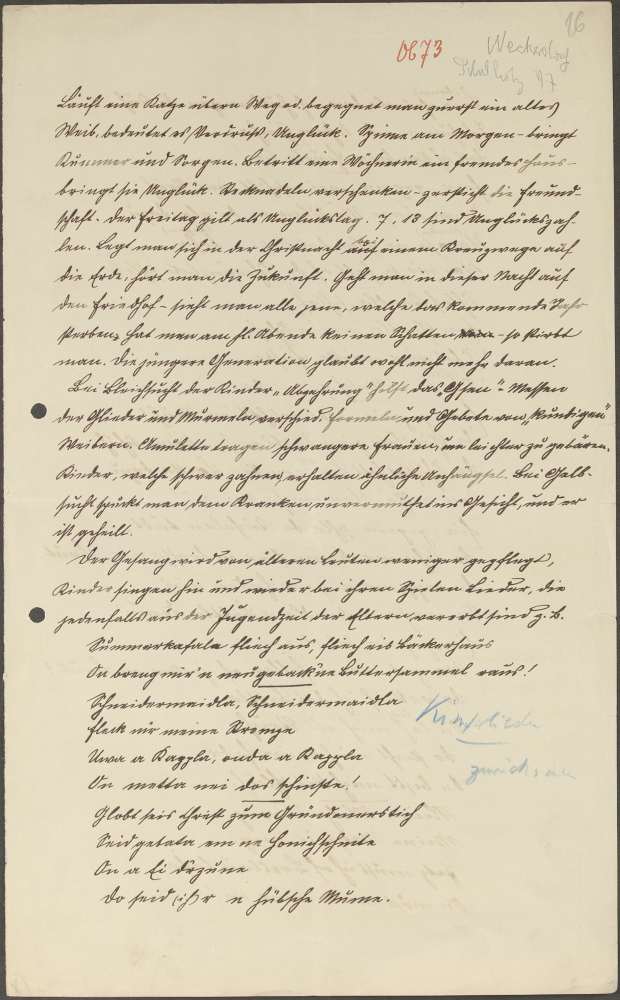 16
0673 Weckersdorf
97
Läuft eine Katze übern Weg od. begegnet man zuerst ein altes
Weib, bedeutet es Verdruß, Unglück. Spinne am Morgen - bringt
Kummer und Sorgen. Betritt eine Wöchnerin ein fremdes Haus -
bringt sie Unglück. Stecknadeln verschenken - zersticht die Freund-
schaft. Der Freitag gilt als Unglückstag. 7, 13 sind Unglückszah-
len. Legt man sich in der Christnacht auf einem Kreuzwege auf
die Erde, hört man die Zukunft. Geht man in dieser Nacht auf
den Friedhof - sieht man alle jene, welche das kommende Jahr
sterben. Hat man am hl. Abende keinen Schatten - so stirbt
man. Die jüngere Generation glaubt wohl nicht mehr daran.
Bei Bleichsucht der Kinder „Abzehrung" hilft das Messen
der Glieder und Murmeln verschied. Formeln und Gebete von „kundigen"
Weibern. Amulette tragen schwangere Frauen, um leichter zu gebären.
Kinder, welche schwer zahnen, erhalten ähnliche Anhängsel. Bei Gelb-
sucht spuckt man dem Kranken, unvermuthet ins Gesicht, und er
ist geheilt.
Der Gesang wird von älteren Leuten weniger gepflegt,
Kinder singen hin und wieder bei ihren Spielen Lieder, die
jedenfalls aus der Jugendzeit der Eltern, vererbt sind z. B.
Summerkafala fliech aus, fliech eis Bäckerhaus
On breng mir 'n neugeback'ne Buttersammel raus!
Schneidermeidla, Schneidermaidla
Fleck mir meine
Uwa a Kappla, onda a Kappla
On metta nei dos schinste!
Globt seis Christ zum Gründonnerstich
Seid gebata em ne Honichschnite
On a Ei drzune
Do seid (ih)r n hübsche Mume.
Kinderlieder
zurück an